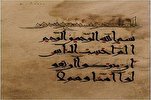 بسم الله الرحمن الرحيم
الم احسب الناس
ان يتركوا ان يقو
لوا امنا وهم لا